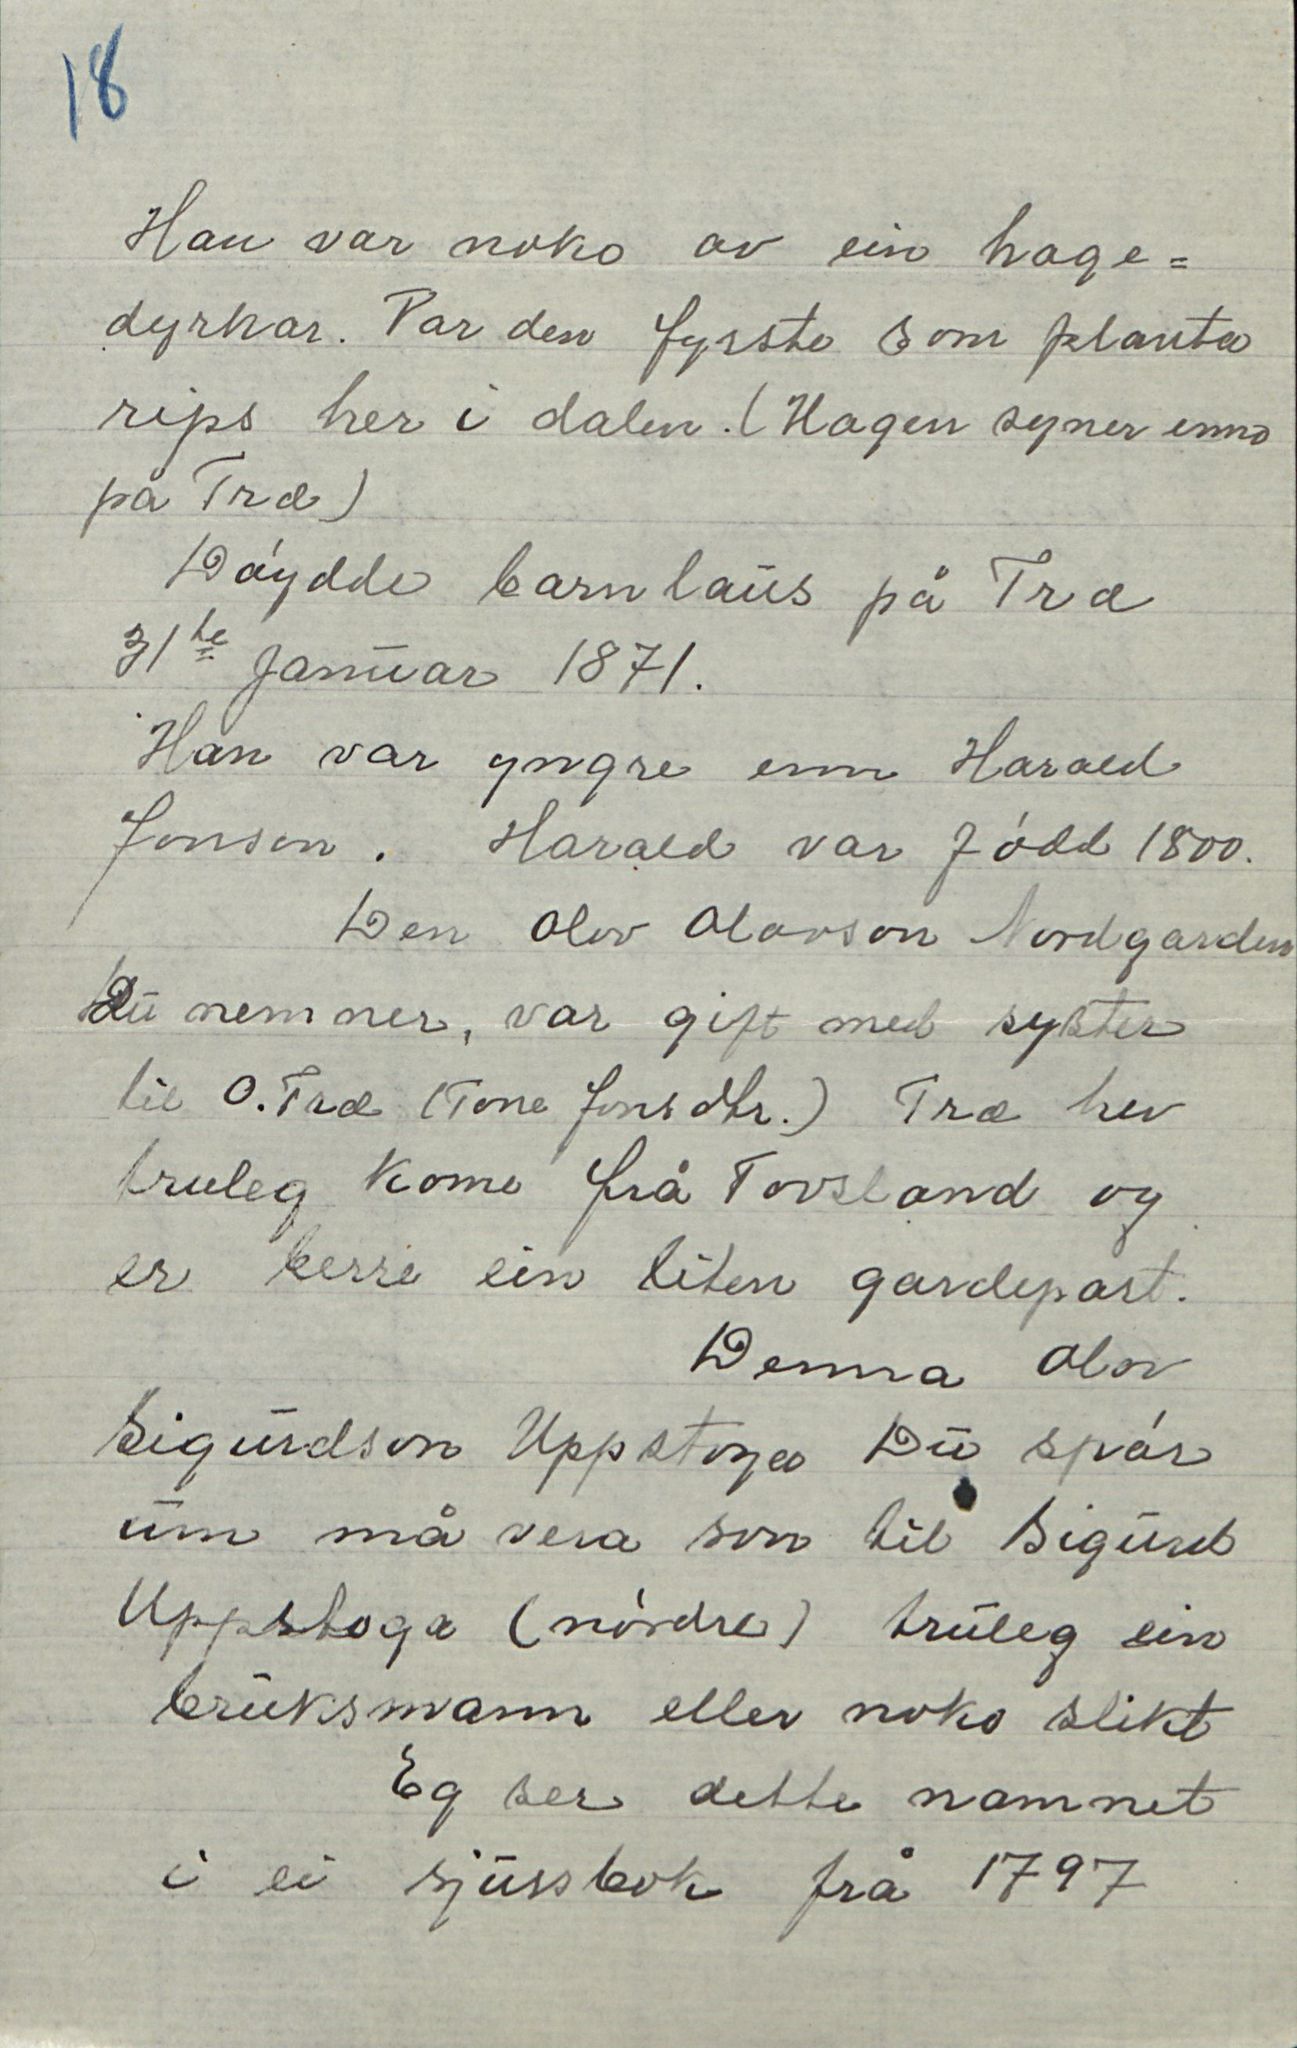 18
Han var noko av ein hage=
dyrkar. Var den fyrste som planta
rips her i dalen. (Hagen syner enno
på Træ)
Dóydde barnlaus på Træ
31te Januar 1871.
Han var yngre enn Harald
Jonson. Harald var fódd 1800.
Den Olov Olavson Nordgarden
Du nemner, var gift med syster
til O. Træ (Tone Jonsdtr.) Træ hev
truleg kome frå Tovsland og
er berre ein liten gardepart.
Denna Olov
Sigurdson Uppstoga Du spór
um må vera son til Sigurd
Uppstoga (nórdre) truleg ein
bruksmann eller noko slikt
Eg ser dette namnet
i ei sjussbok frå 1797